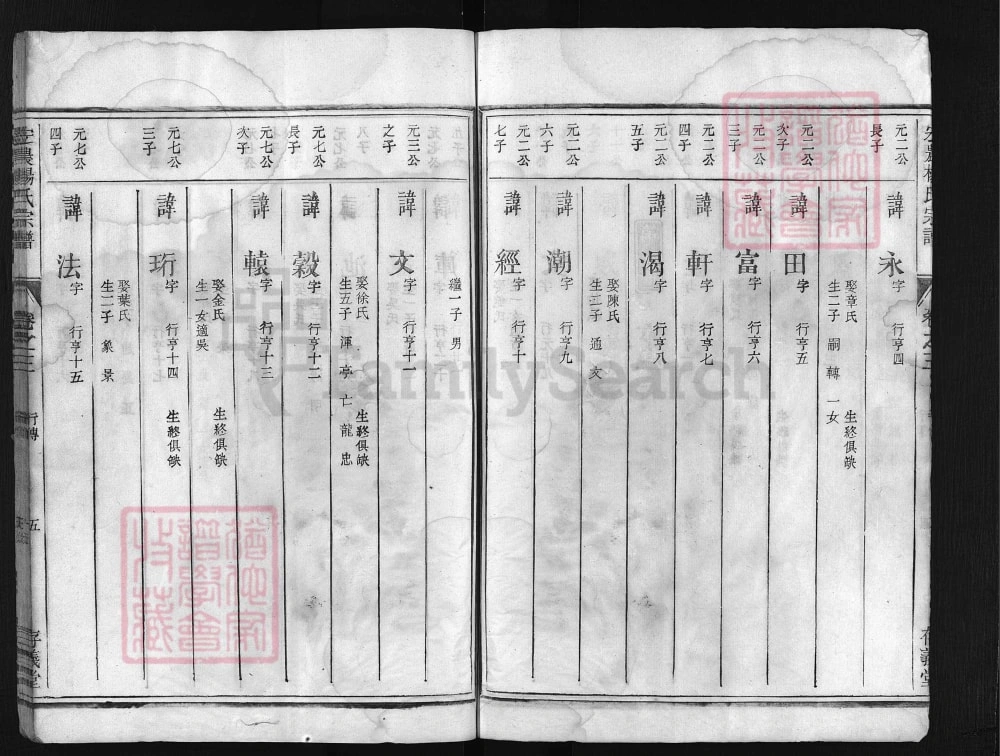 元二公
長子
諱永
字 行亨四
娶章氏 生終俱缺
生二子 嗣 轉 一女
元二公
次子
諱田
字 行亨五
元二公
三子
諱富
字 行亨六
元二公
四子
諱軒
字 行亨七
元二公
五子
諱渴
字 行亨八
娶陳氏
生二子 通 文
元二公
六子
諱潮
字 行亨九
元二公
七子
諱經
字 行亨十
繼一子 男
元三公
之子
諱文
字 行亨十一
娶徐氏 生終俱缺
生五子 渾 亭 亡 龍 忠
元七公
長子
諱穀
字 行亨十二
元七公
次子
諱轅
字 行亨十三
娶金氏 生終俱缺
生一女適吳
元七公
三子
諱珩
字 行亨十四 生終俱缺
娶葉氏
生二子 象 景
元七公
四子
諱法
字 行亨十五
弘農楊氏宗譜
卷之三
行傳
五
存義堂
FamilySearch